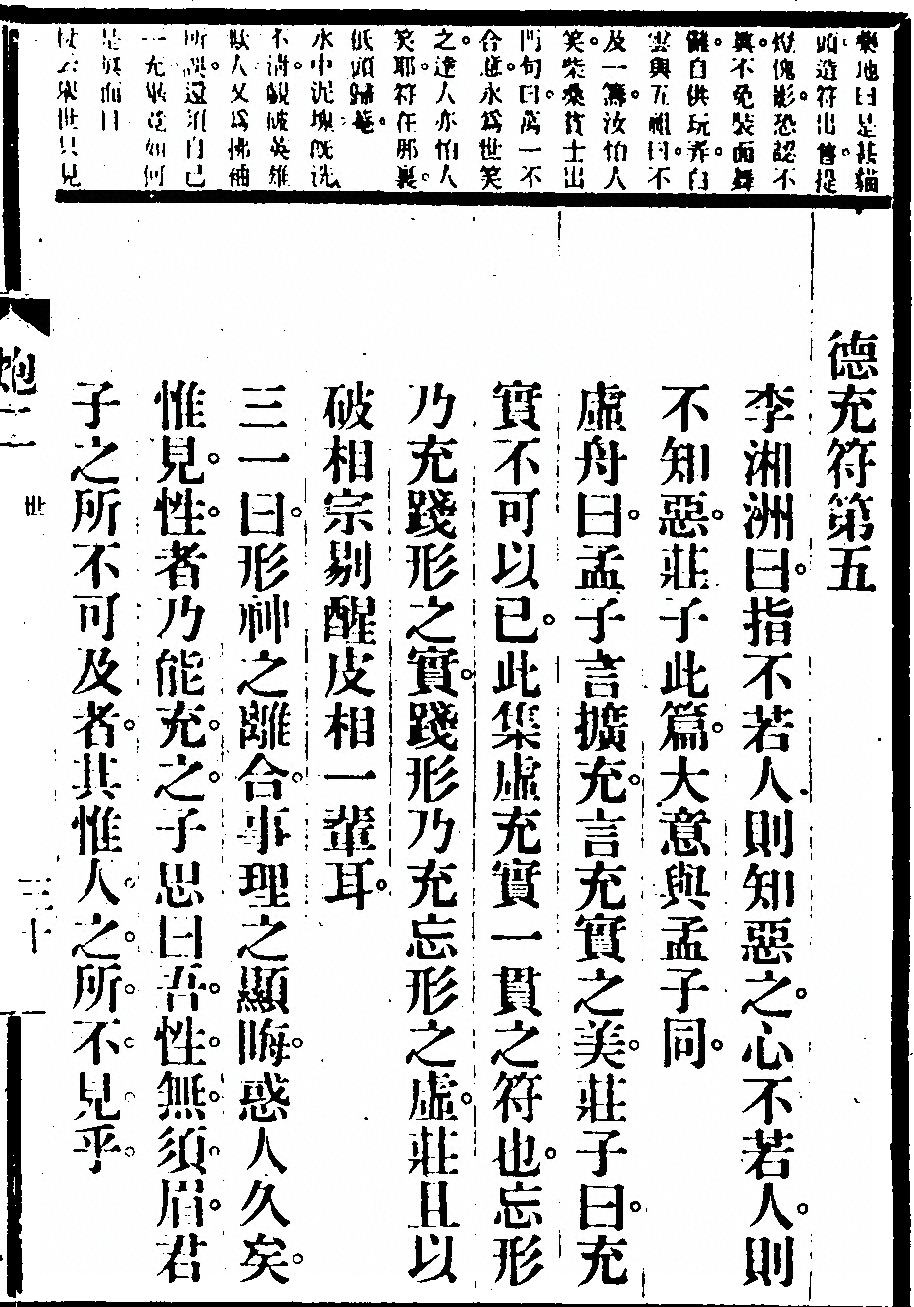 樂地曰是甚貓
頭造符出售提
燈傀影恐認不
眞不免裝面舞
雖自供玩弄白
雲與五祖曰不
及一籌汝怕人
笑柴桑貧士出
門句曰萬一不
合意永爲世笑
之達人亦怕人
笑耶符在那裏
低頭歸菴
水中泥塊旣洗
不淸覷破英雄
欺人又爲佛祖
所誤還須自己
一充畢竟如何
是眞面目
杖云舉世只見
德充符第五
李湘洲曰指不若人則知惡之心不若人則
不知惡莊子此篇大意與孟子同
虛舟曰孟子言擴充言充實之美莊子曰充
實不可以已此集虛充實一貫之符也忘形
乃充踐形之實踐形乃充忘形之虛莊且以
破相宗剔醒皮相一輩耳
三一曰形神之離合事理之顯晦惑人久矣
惟見性者乃能充之子思曰吾性無須眉君
子之所不可及者其惟人之所不見乎
炮二
世
三十